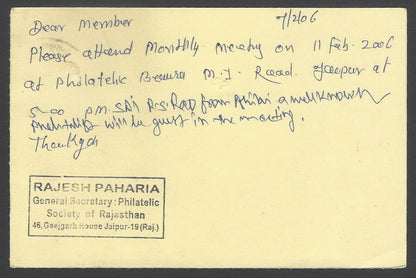 7/2/06
Dear Member
Please attend Monthly meeting on 11 Feb. 2006
at Philatelic Bureau M.I. Road. Jaipur at
5-00 PM. Sri R.S. Rao from a well known
Philatelist will be guest in the meeting.
Thankyou
RAJESH PAHARIA
General Secretary: Philatelic
Society of Rajasthan
46, Geejgarh House Jaipur-19 (Raj.)